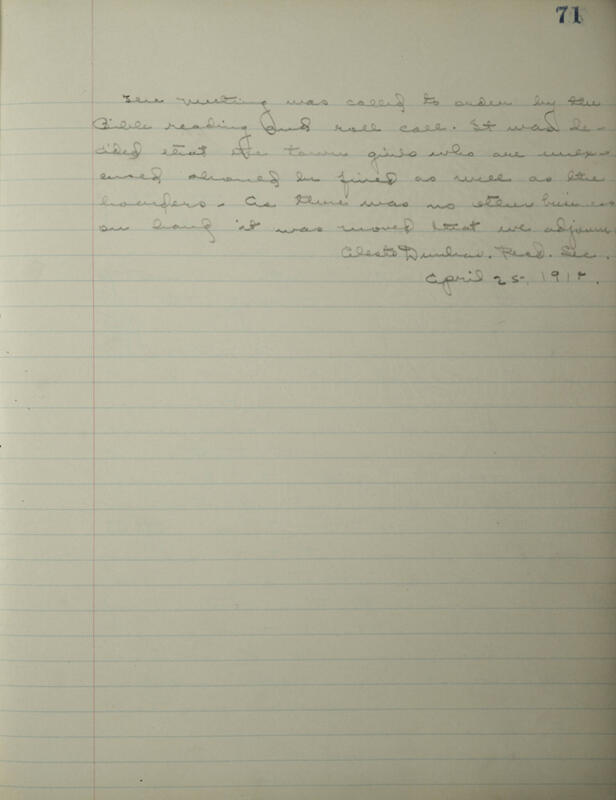 71
The meeting was called to order by the
Bible reading and roll call. It was de-
cided that the town girls who are unex-
cused should be fined as well as the
boarders. As there was no other business
on hand it was moved that we adjourn.
Dunbar. Recd. Sec.
April 25,